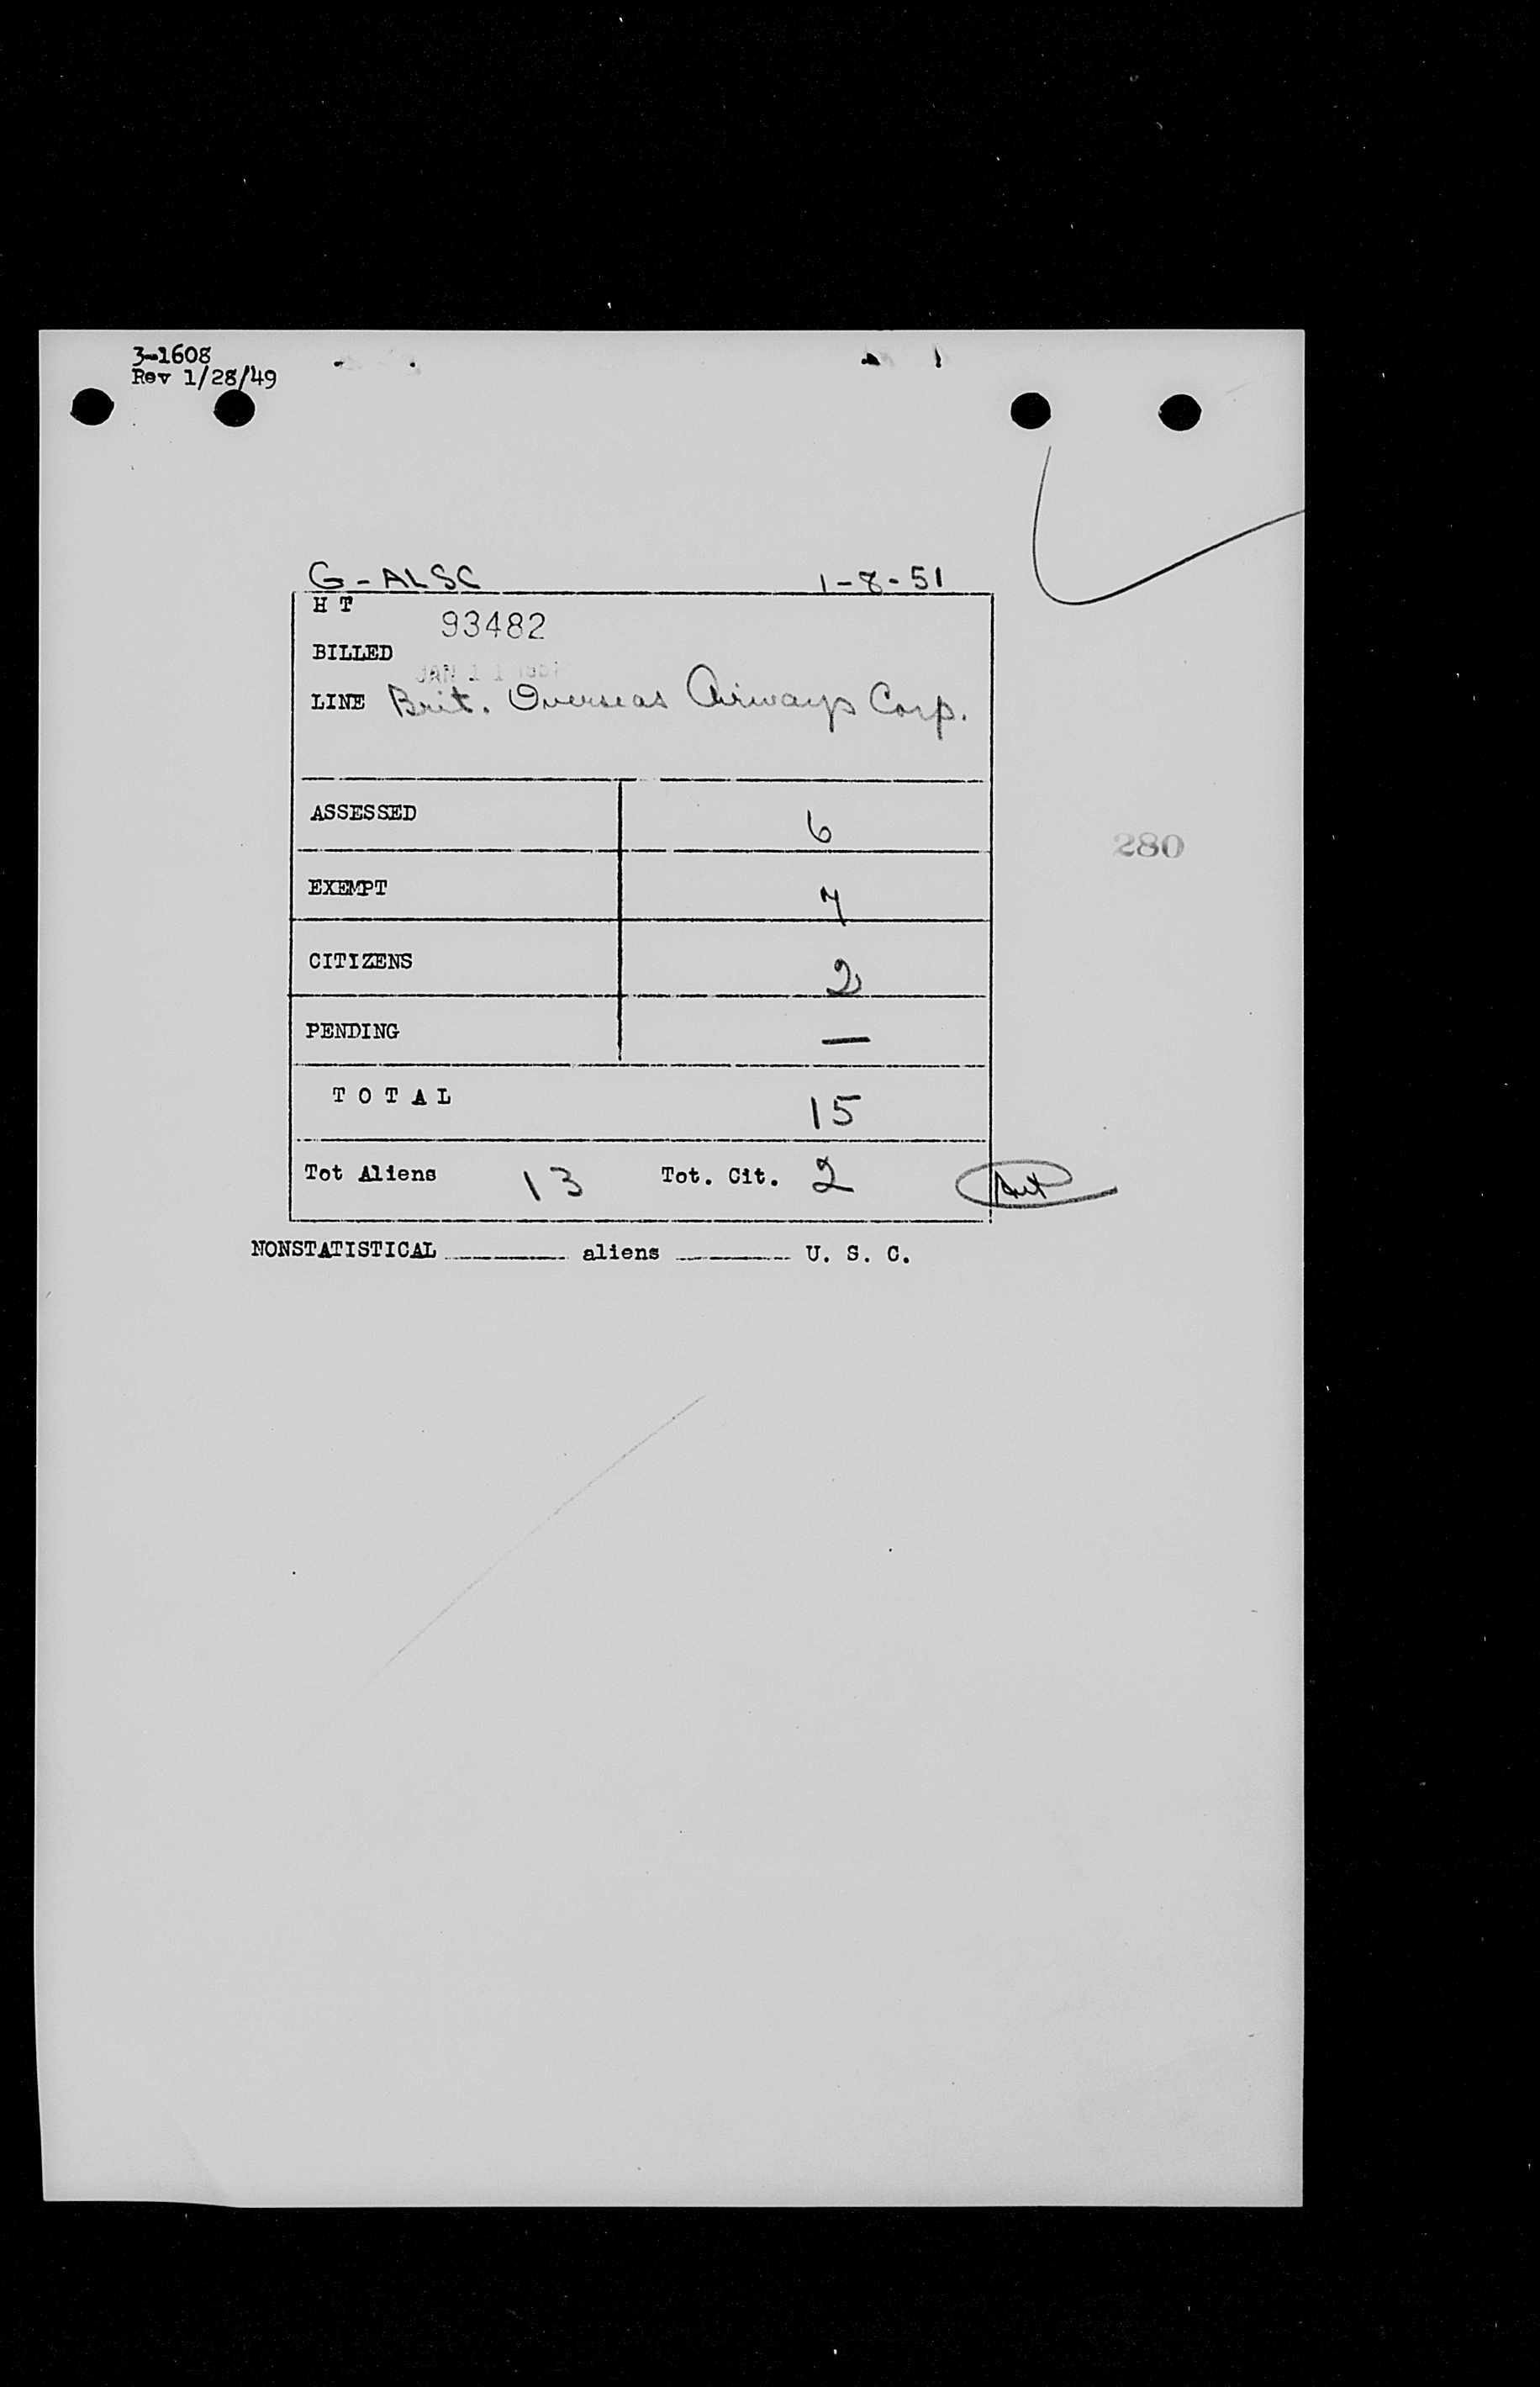 3-1608
Rev 1/28/49
G-ALSC 1-8-51
H T
93482
BILLED
JAN 11 1951
LINE Brit. Overseas Airways Corp.
ASSESSED 6
280
EXEMPT 7
CITIZENS 2
PENDING —
T O T A L 15
Tot Aliens 13 Tot. Cit. 2
NONSTATISTICAL ________ aliens ________ U. S. C.